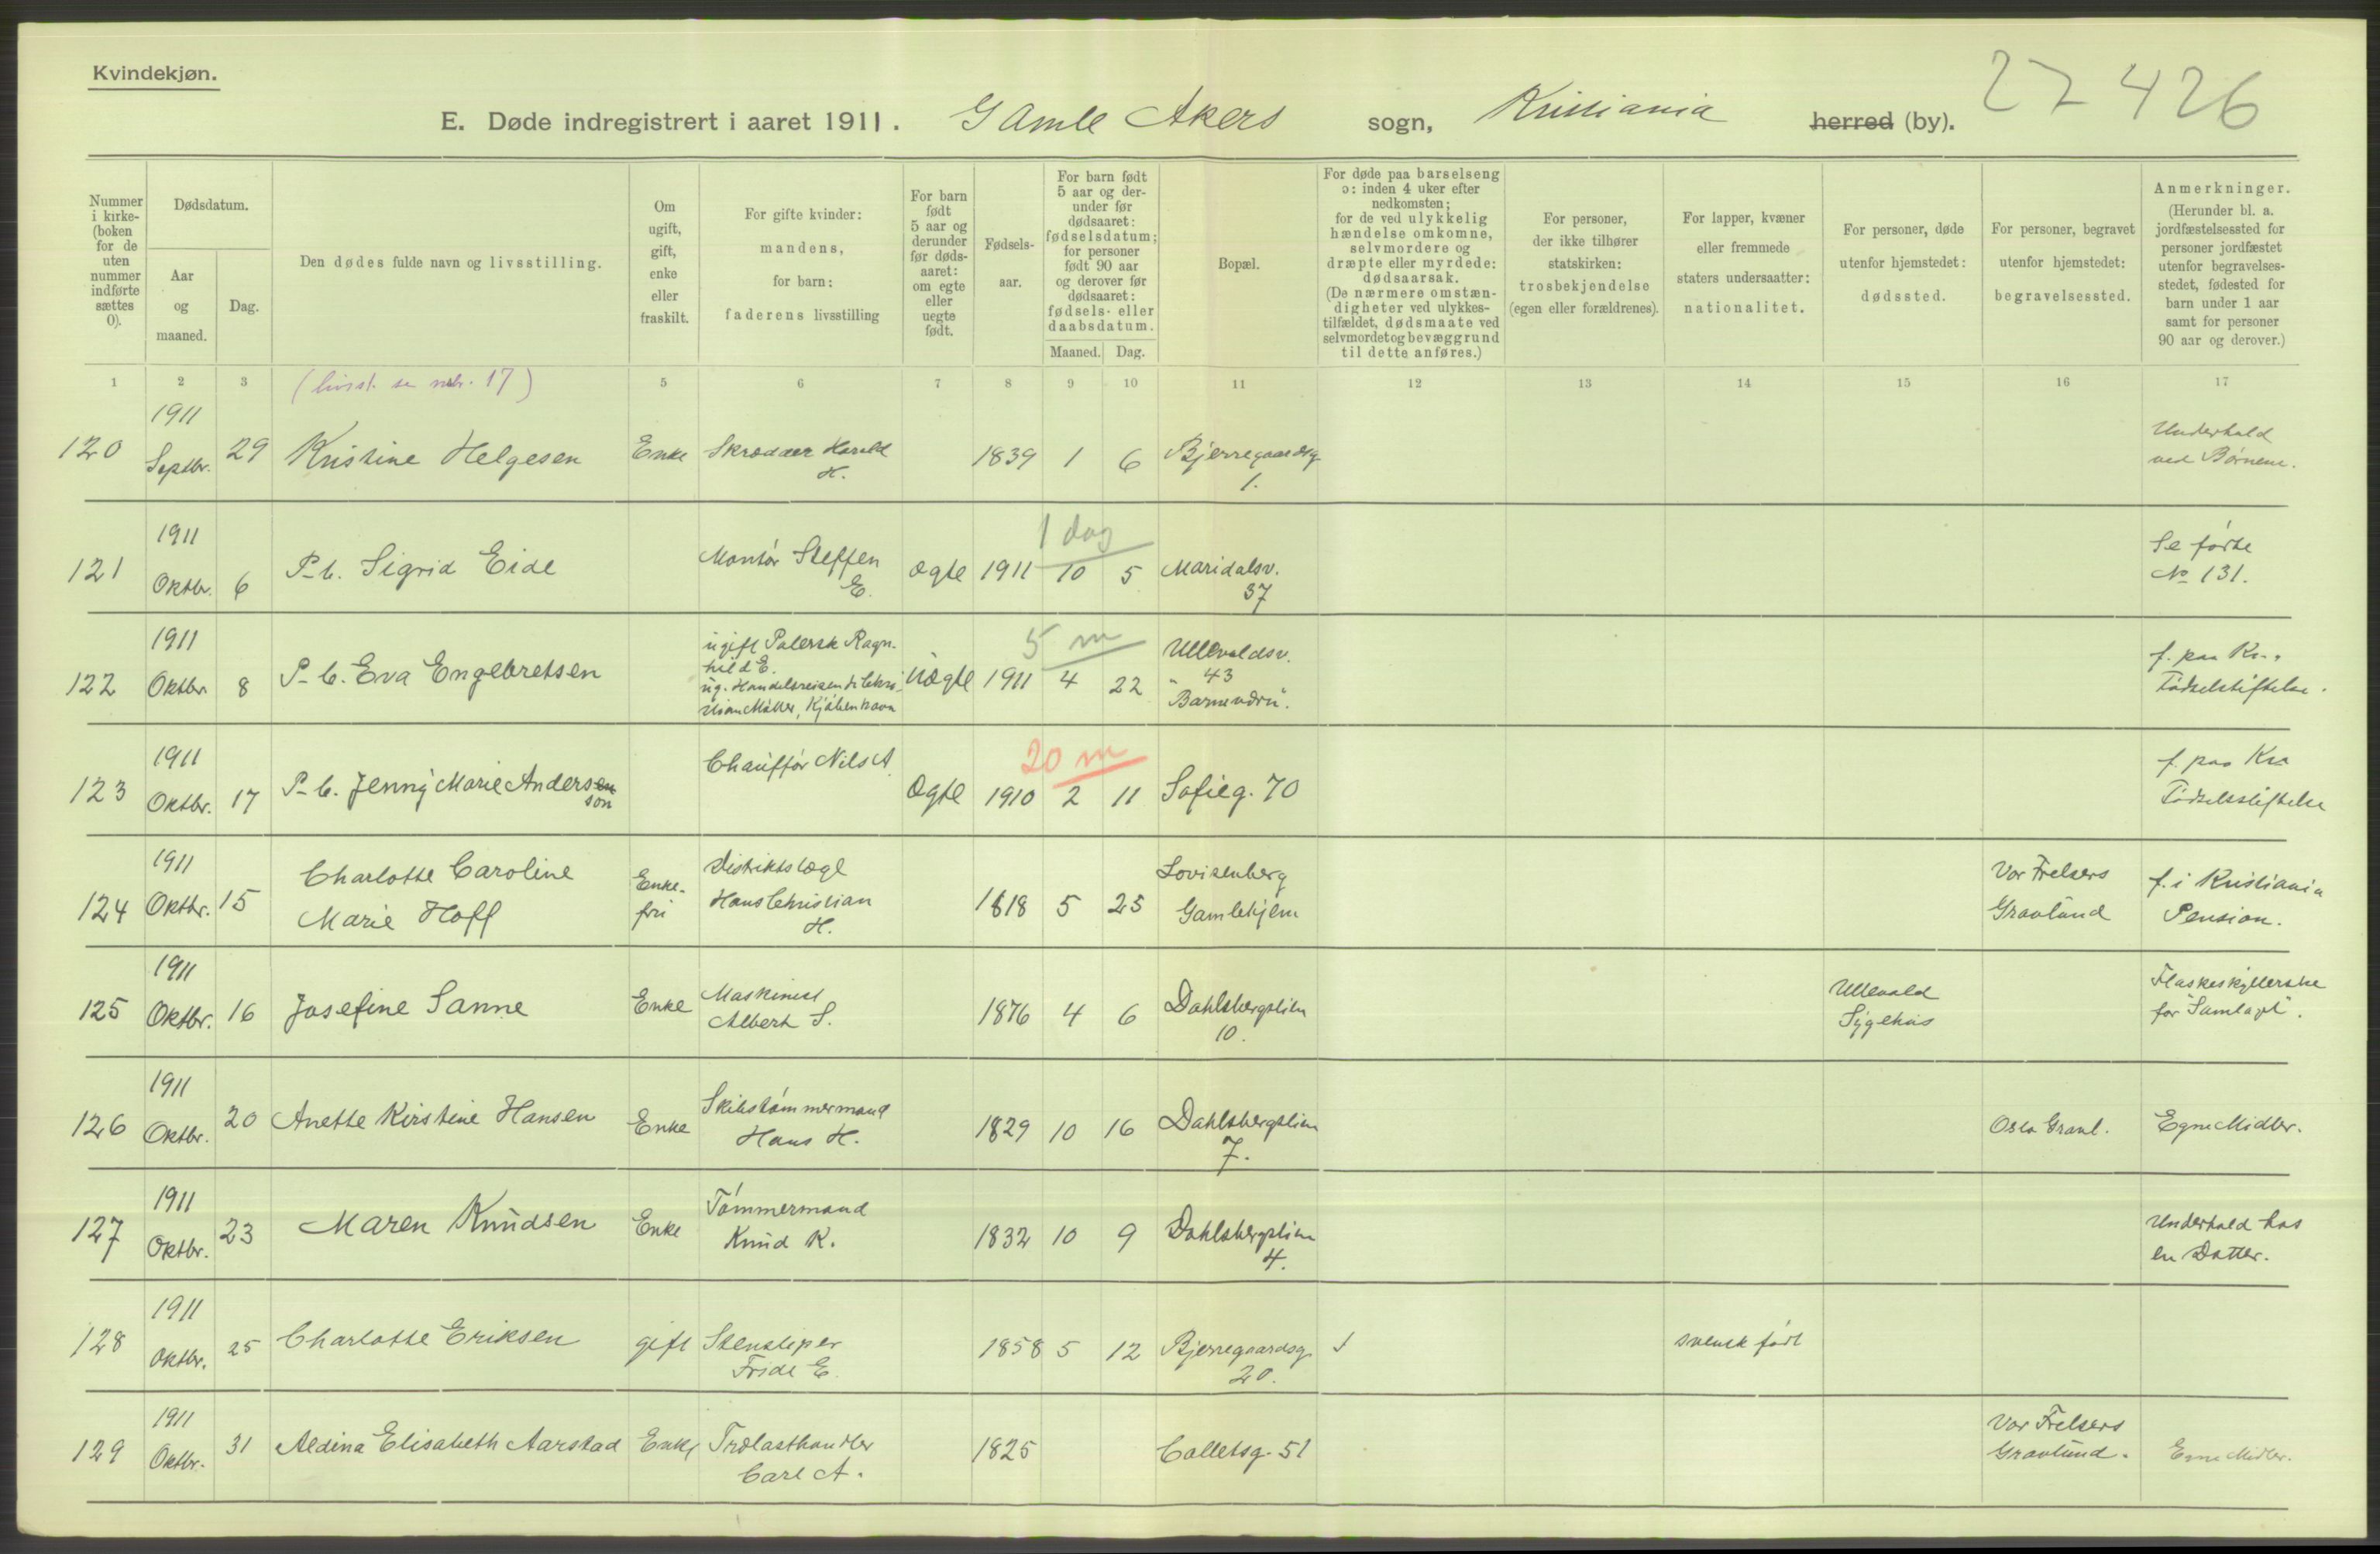 Kvindekjøn.
E. Døde indregistrert i aaret 1911. Gamle Akers sogn, Kristiania herred (by). 27 426
Nummer i kirke-(boken for de uten nummer indførte sættes 0).
Dødsdatum.
Aar og maaned.
Dag.
Den dødes fulde navn og livsstilling.
Om ugift, gift, enke eller fraskilt.
For gifte kvinder: mandens, for barn: faderens livsstilling
For barn født 5 aar og derunder før døds-aaret: om egte eller uegte født.
Fødsels-aar.
For barn født 5 aar og der-under før dødsaaret: fødselsdatum; for personer født 90 aar og derover før dødsaaret: fødsels- eller daabsdatum.
Maaned. Dag.
Bopæl.
For døde paa barselseng ɔ: inden 4 uker efter nedkomsten; for de ved ulykkelig hændelse omkomne, selvmordere og dræpte eller myrdede: dødsaarsak. (De nærmere omstæn-digheter ved ulykkes-tilfældet, dødsmaate ved selvmordet og bevæggrund til dette anføres.)
For personer, der ikke tilhører statskirken: trosbekjendelse (egen eller forældrenes).
For lapper, kvæner eller fremmede staters undersaatter: nationalitet.
For personer, døde utenfor hjemstedet: dødssted.
For personer, begravet utenfor hjemstedet: begravelsessted.
Anmerkninger. (Herunder bl. a. jordfæstelsessted for personer jordfæstet utenfor begravelses-stedet, fødested for barn under 1 aar samt for personer 90 aar og derover.)
1 2 3 (livsst. se rubr. 17) 5 6 7 8 9 10 11 12 13 14 15 16 17
120 1911 Septbr. 29 Kristine Helgesen Enke Skrædder Harald H. 1839 1 6 Bjerregaardsg. 1. Underhold ved Børnene.
121 1911 Oktbr. 6 P-b. Sigrid Eide Montør Steffen E. Ægte 1911 1 dag 10 5 Maridalsv. 37 Se fødte No 131.
122 1911 Oktbr 8 P-b. Eva Engebretsen ugift Polersk Ragn-hild E. ug. Handelsreisende Chri-stian Møller, Kjøbenhavn Uægte 1911 5 m 4 22 Ullevoldsv. 43 f. paa Kr. Fødselsstiftelse.
123 1911 Oktbr. 17 P-b. Jenny Marie Andersen son Chauffør Nils A. Ægte 1910 20 m 2 11 Sofieg. 70 f. paa Kra Fødselsstiftelse
124 1911 Oktbr. 15 Charlotte Caroline Marie Hoff Enke-fru Distriktslæge Hans Christian H. 1818 5 25 Lovisenberg Gamlehjem Vor Frelsers Gravlund f. i Kristiania Pension.
125 1911 Oktbr. 16 Josefine Sanne Enke Maskinist Albert S. 1876 4 6 Dahlsbergstien 10. Ullevold Sygehus Flaskeskyllerske for "Samlaget".
126 1911 Oktbr. 20 Anette Kirstine Hansen Enke Skibstømmermand Hans H. 1829 10 16 Dahlsbergstien 7. Oslo Gravl. Egne Midler.
127 1911 Oktbr. 23 Maren Knudsen Enke Tømmermand Knud K. 1832 10 9 Dahlsbergstien 4. Underhold hos en Datter.
128 1911 Oktbr. 25 Charlotte Eriksen gift Stensliper 1858 5 12 Bjerregaardsg. 20. svensk født
129 1911 Oktbr. 31 Aldina Elisabeth Aarstad Enke Trælasthandler Carl A. 1825 Colletsg. 51 Vor Frelsers Gravlund. Egne Midler.